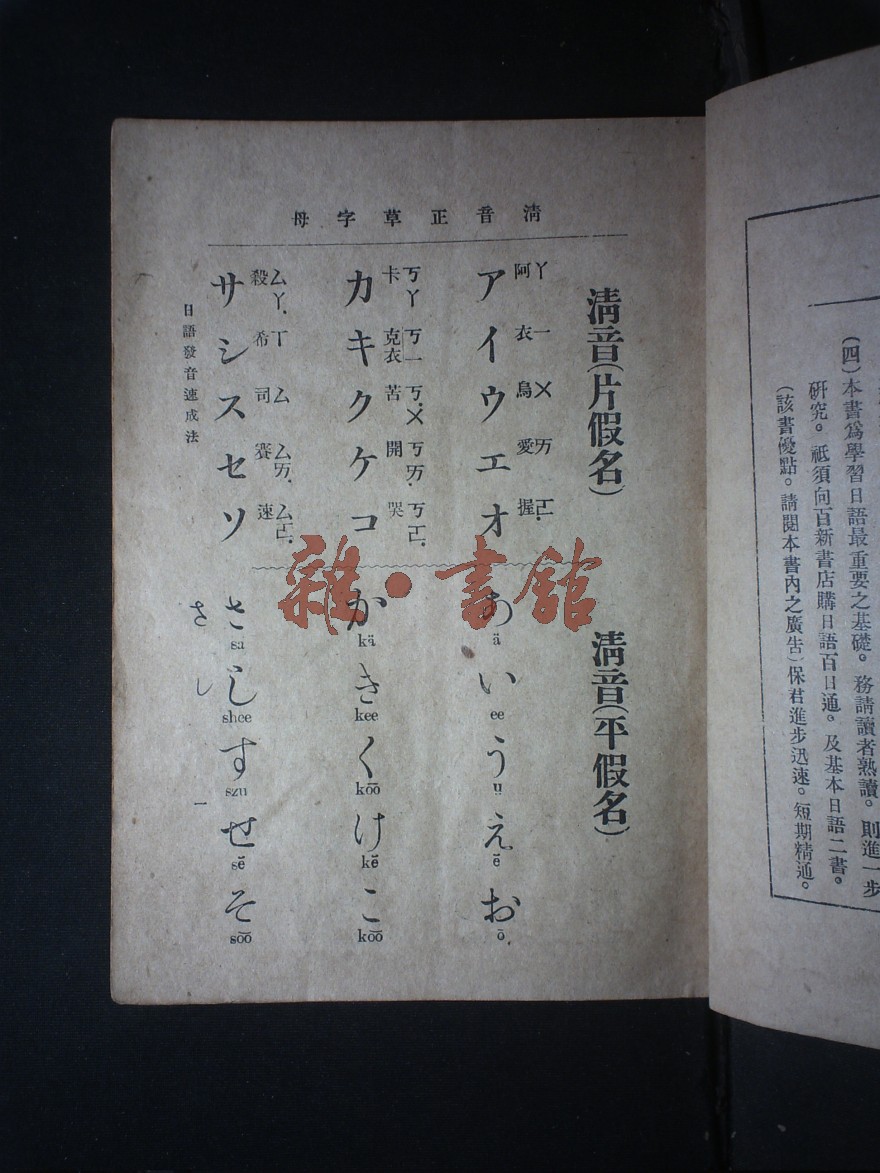 (四)本書爲學習日語最重要之基礎。務請讀者熟讀。則進一步
研究。祗須向百新書店購日語百日通。及基本日語二書。
(該書優點。請閱本書內之廣告)保君進步迅速。短期精通。
清音正草字母
清音(片假名)
清音(平假名)
ㄚ 一 ㄨ ㄞ ㄛ.
阿 衣 烏 愛 握
アイウエオ
あ い う え お
ä ee ü ē ō.
ㄎㄚ ㄎ一 ㄎ.ㄨ ㄎㄞ. ㄎㄛ.
卡 克衣 苦 開 哭
カキクケコ
か き く け こ
kä kee kōō kē kōō
ㄙㄚ. ㄒ ㄙ ㄙㄞ. ㄙㄛ.
殺 希 司 賽 速
サシスセソ
さ し す せ そ
sa shee szu sē sōō
さ し
日語發音速成法
一
雜·書館